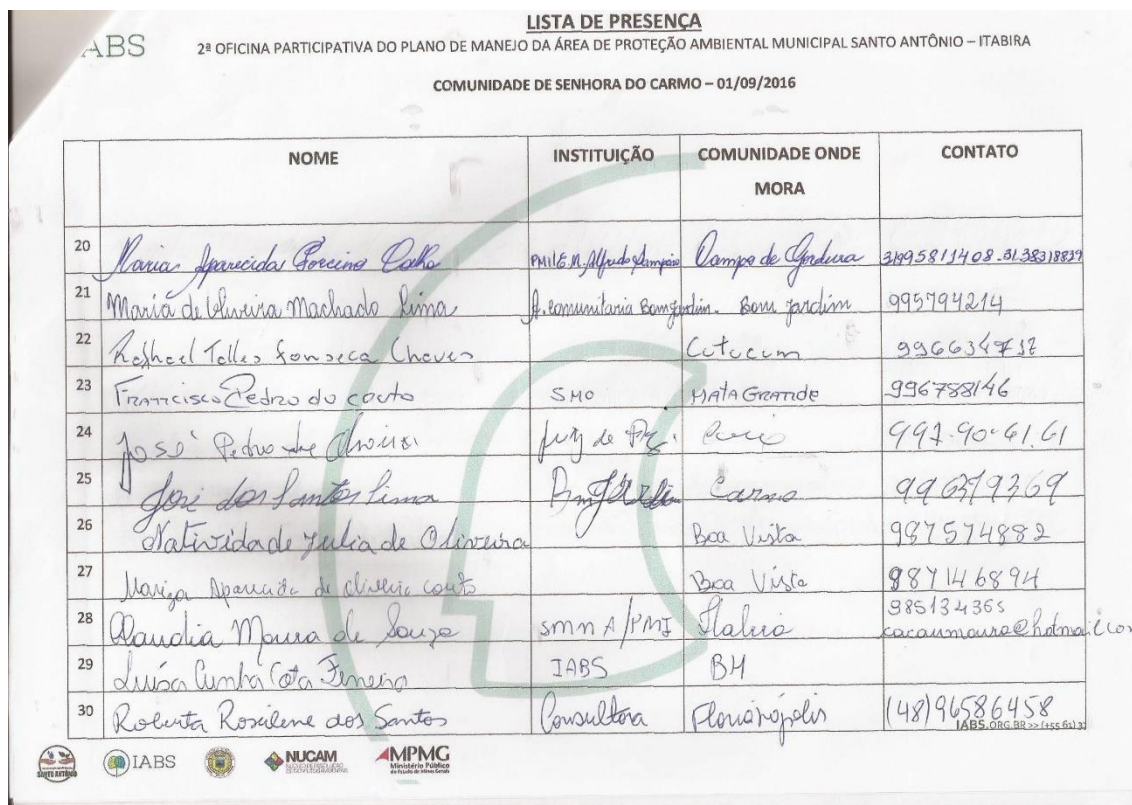 LISTA DE PRESENÇA
ABS
2ª OFICINA PARTICIPATIVA DO PLANO DE MANEJO DA ÁREA DE PROTEÇÃO AMBIENTAL MUNICIPAL SANTO ANTÔNIO – ITABIRA
COMUNIDADE DE SENHORA DO CARMO – 01/09/2016
NOME INSTITUIÇÃO COMUNIDADE ONDE MORA CONTATO
20 Maria Aparecida Porcino Alfredo Sampaio Campo de Gordura 31995811408-3138318839
21 Maria de Oliveira Machado Lima A. comunitaria Bom Jardim. Bom jardim 995794214
22 Raphael Telles Fonseca Chaves Cutucum
23 Francisco Pedro do couto SMO MATA GRANDE 996788146
24 José Pedro de Oliveira juiz de 997-90-61.61
25 José dos Santos Lima Carmo 996379369
26 Natividade Julia de Oliveira Boa Vista 987574882
27 Mariza Aparecida de oliveira couto Boa Vista 987146894
28 Claudia Moura de Souza PMI 985134365
cacaumoura@hotmail.com
29 Luísa Cunha Cota Ferreira IABS BH
30 Roberta Rosilene dos Santos Consultora Florianópolis (48)96586458
IABS.ORG.BR >> (+55 61) 3
SANTO ANTÔNIO IABS NUCAM MPMG
Ministério Público
do Estado de Minas Gerais